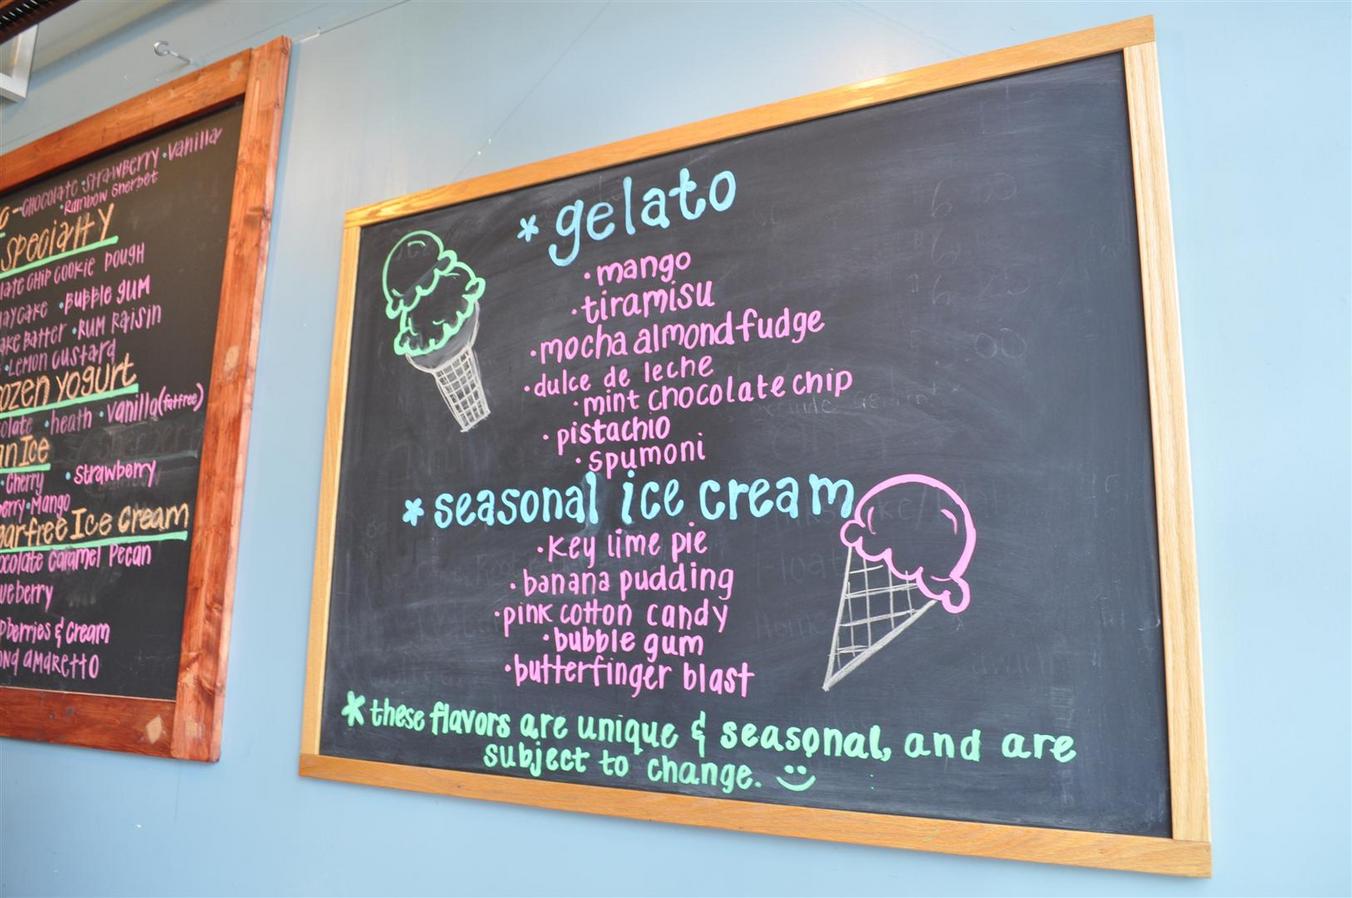 -chocolate •strawberry •vanilla
•Rainbow Sherbet
Specialty
chip cookie dough
•Bubble gum
•Rum Raisin
•Lemon custard
yogurt
•heath •vanilla(fatfree)
Ice
•Cherry •strawberry
•Mango
Ice Cream
caramel Pecan
& Cream
amaretto
* gelato
•mango
•tiramisu
•mocha almond fudge
•dulce de leche
•mint chocolate chip
•pistachio
•spumoni
* seasonal ice cream
•key lime pie
•banana pudding
•pink cotton candy
•bubble gum
•butterfinger blast
* these flavors are unique & seasonal, and are
subject to change.